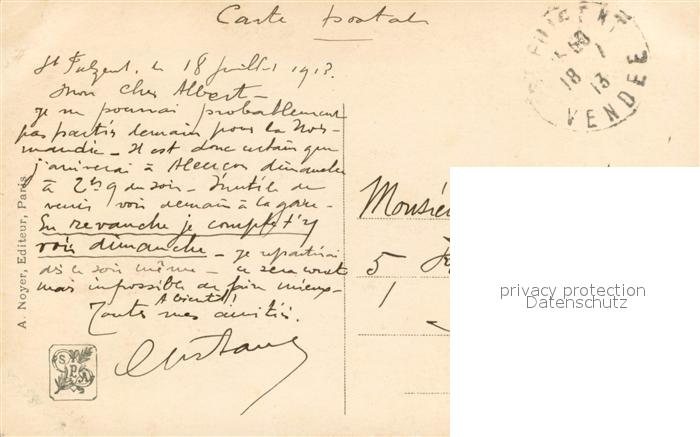 Carte postale
St Fulgent, le 18 juillet 1913.
Mon cher Albert -
je ne pourrai probablement
pas partir demain pour la Nor-
mandie - Il est donc certain que
j'arriverai à Alençon dimanche
à 2h 9 du soir - Inutile de
venir voir demain à la gare -
En revanche je compte t'y
voir dimanche - je repartirai
dès le soir même - ce sera court
mais impossible de faire mieux -
A bientôt!
Toutes mes amitiés.
FULGENT
18
13
VENDÉE
Monsie
5
1
A. Noyer, Editeur, Paris
privacy protection
Datenschutz